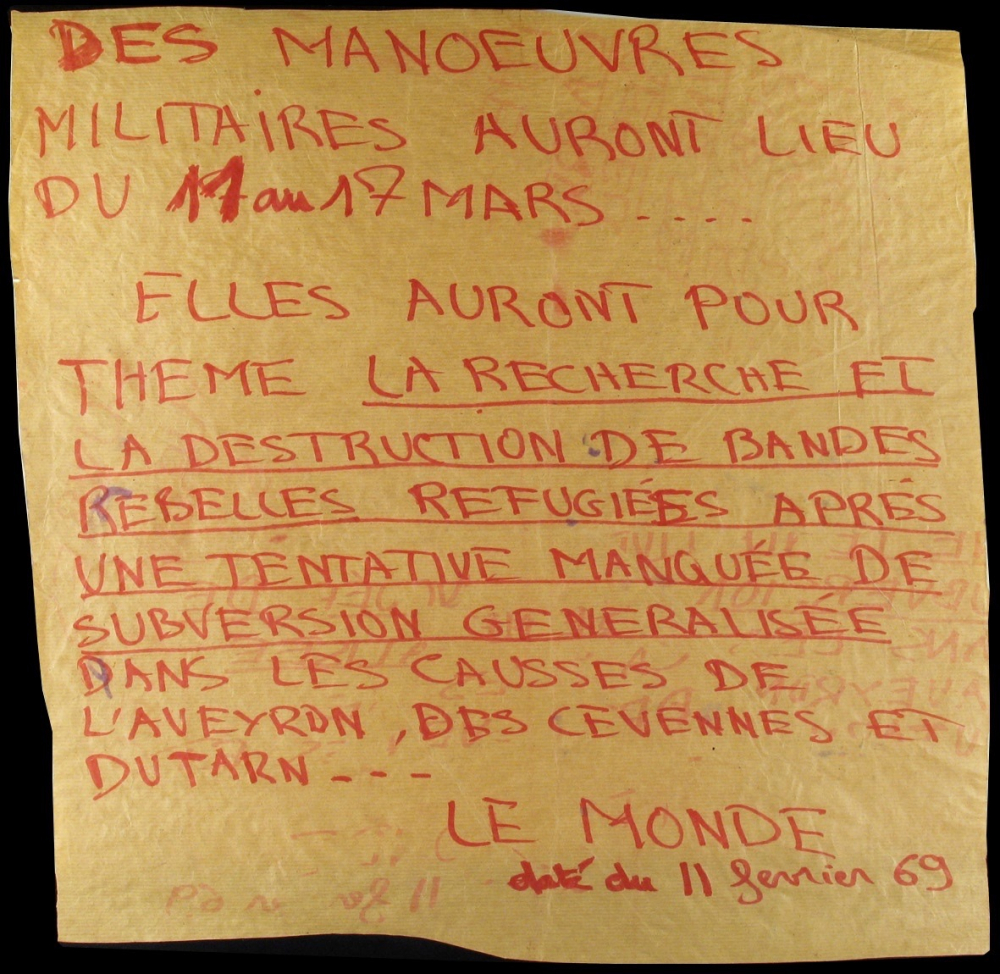 DES MANOEUVRES
MILITAIRES AURONT LIEU
DU 11 au 17 MARS ....
ELLES AURONT POUR
THEME LA RECHERCHE ET
LA DESTRUCTION DE BANDES
REBELLES REFUGIÉES APRÉS
UNE TENTATIVE MANQUÉE DE
SUBVERSION GENERALISÉE
DANS LES CAUSSES DE
L'AVEYRON, DES CEVENNES ET
DU TARN ---
LE MONDE
daté du 11 fevrier 69